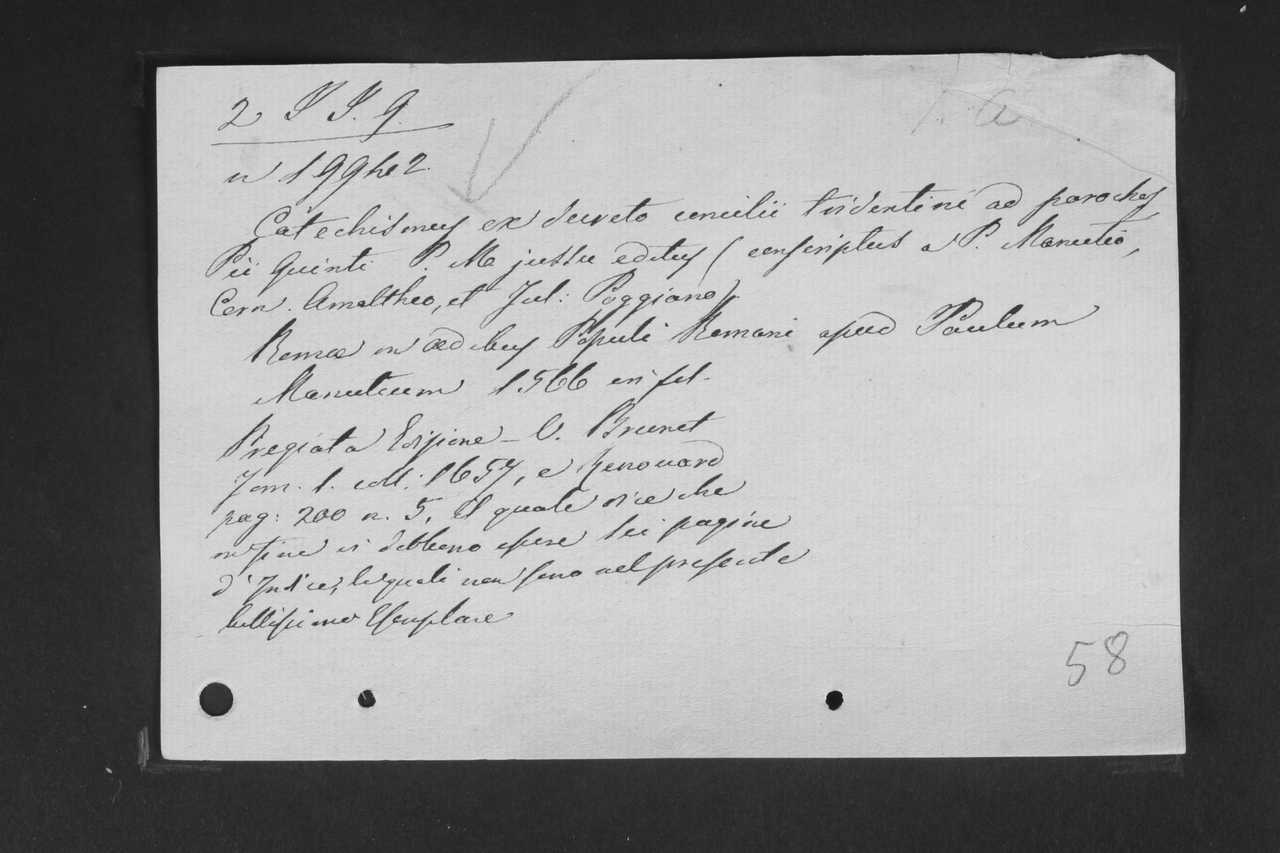 2 I I. 9.
n 199he2.
Catechismus ex decreto concilii tridentini ad parochos
Pii Quinti P. M. jussu editus (conscriptus a P. Manutio,
Corn. Amaltheo, et Jul: Poggiano).
Romæ in ædibus Populi Romani apud Paulum
Manutium 1566 in fol.
Pregiata Edizione – V. Brunet
Tom. 1. coll: 1657, e Renouard
pag: 200 n. 5, il quale dice che
in fine vi debbono essere sei pagine
d'Indice, le quali non sono nel presente
bellissimo Esemplare
58